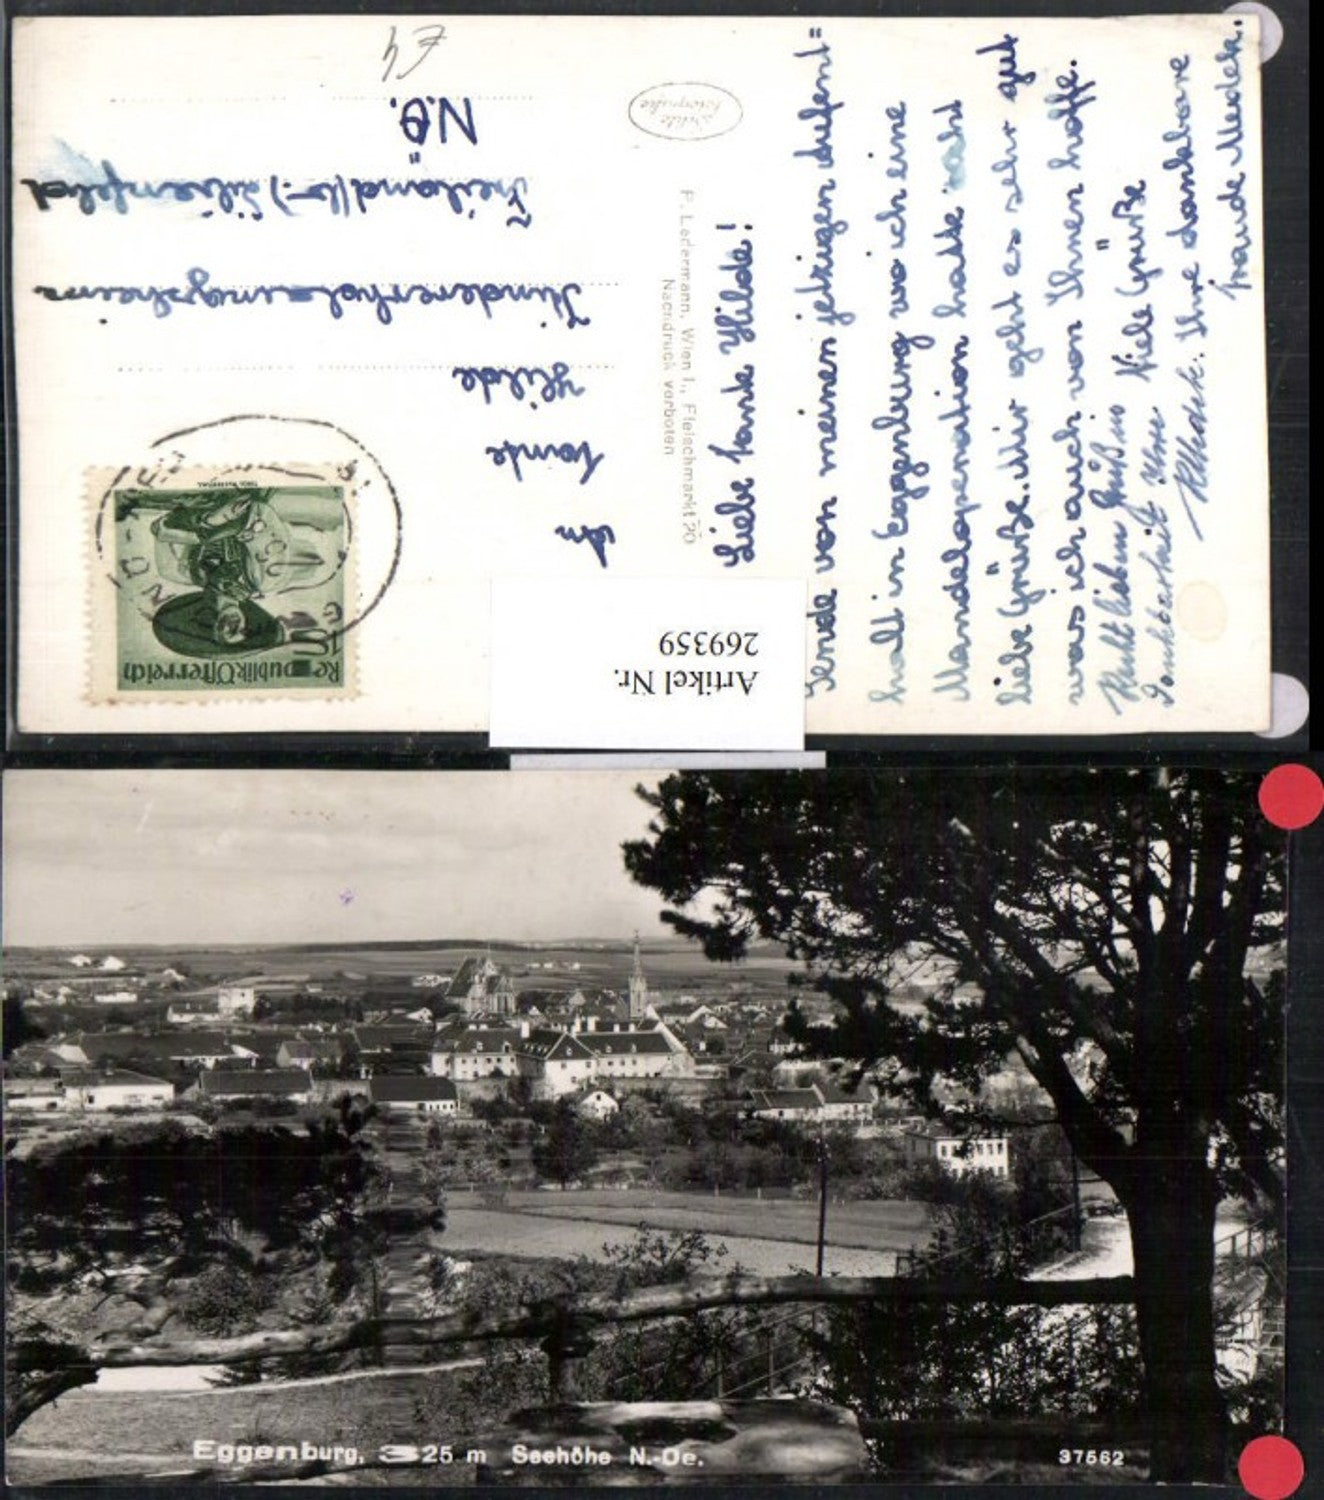 Liebe Tante Hilde!
Sende von meinen jetzigen Aufent=
halt in Eggenburg wo ich eine
Mandeloperation hatte
liebe Grüße. Mir geht es sehr gut
was ich auch von Ihnen hoffe.
Viele Grüße
Ihre dankbare
An
Tante
Hilde
Kindererholungsheim
Freiland Lilienfeld
N.Ö.
£4
echte
fotografie
P. Ledermann, Wien I., Fleischmarkt 20
Nachdruck verboten
Republik Österreich
Artikel Nr.
269359
Eggenburg, 325 m Seehöhe N.-Oe.
37562